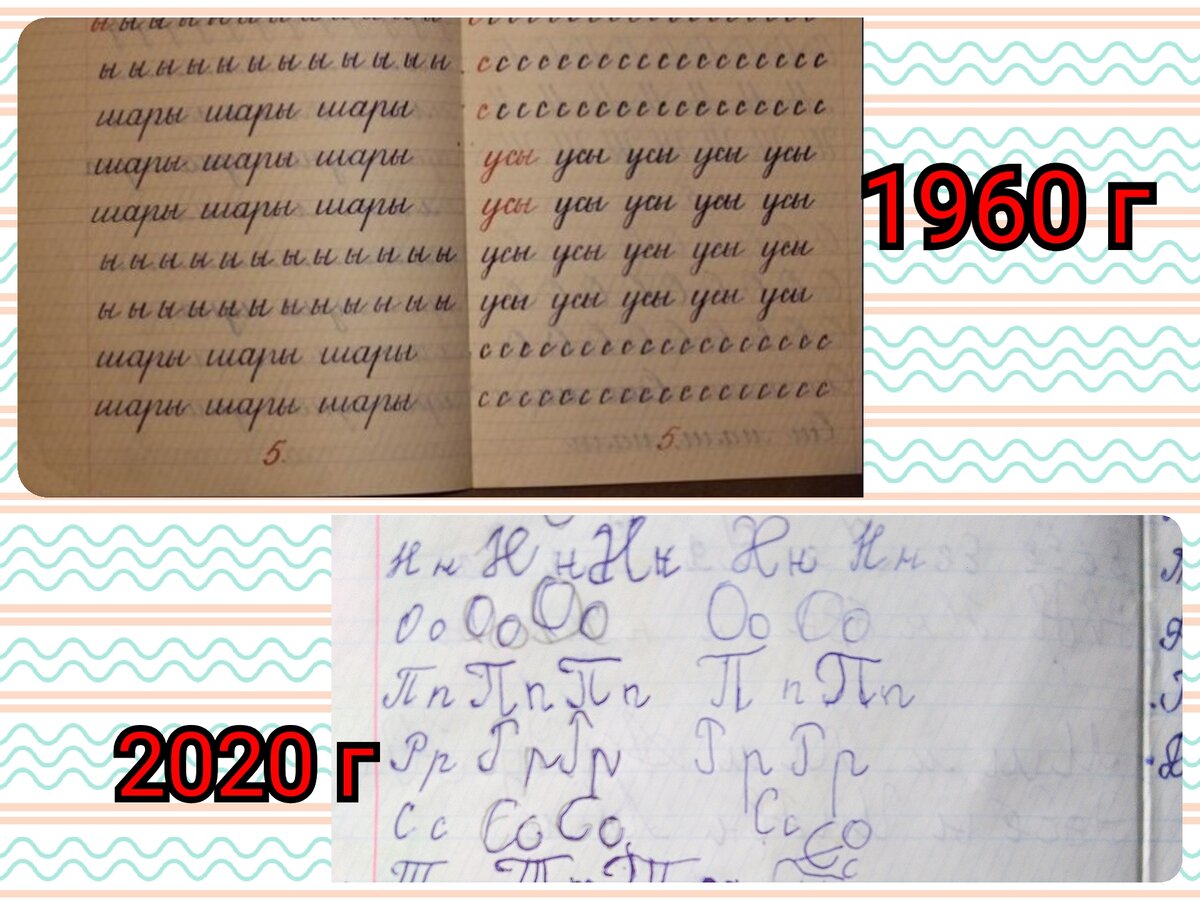 ы ы ы ы ы ы ы ы ы ы ы ы
шары шары шары
шары шары шары
шары шары шары
ы ы ы ы ы ы ы ы ы ы ы ы
ы ы ы ы ы ы ы ы ы ы ы ы
шары шары шары
шары шары шары
5.
с с с с с с с с с с с с с с с с с с
с с с с с с с с с с с с с с с с с с
усы усы усы усы усы
усы усы усы усы усы
усы усы усы усы усы
усы усы усы усы усы
с с с с с с с с с с с с с с с с с с
с с с с с с с с с с с с с с с с с с
5.
1960 г
2020 г
Нн Нн Нн Нн Нн
Оо Оо Оо Оо Оо
Пп Пп Пп Пп Пп
Рр Рр Рр Рр Рр
Сс Со Со Сс Со